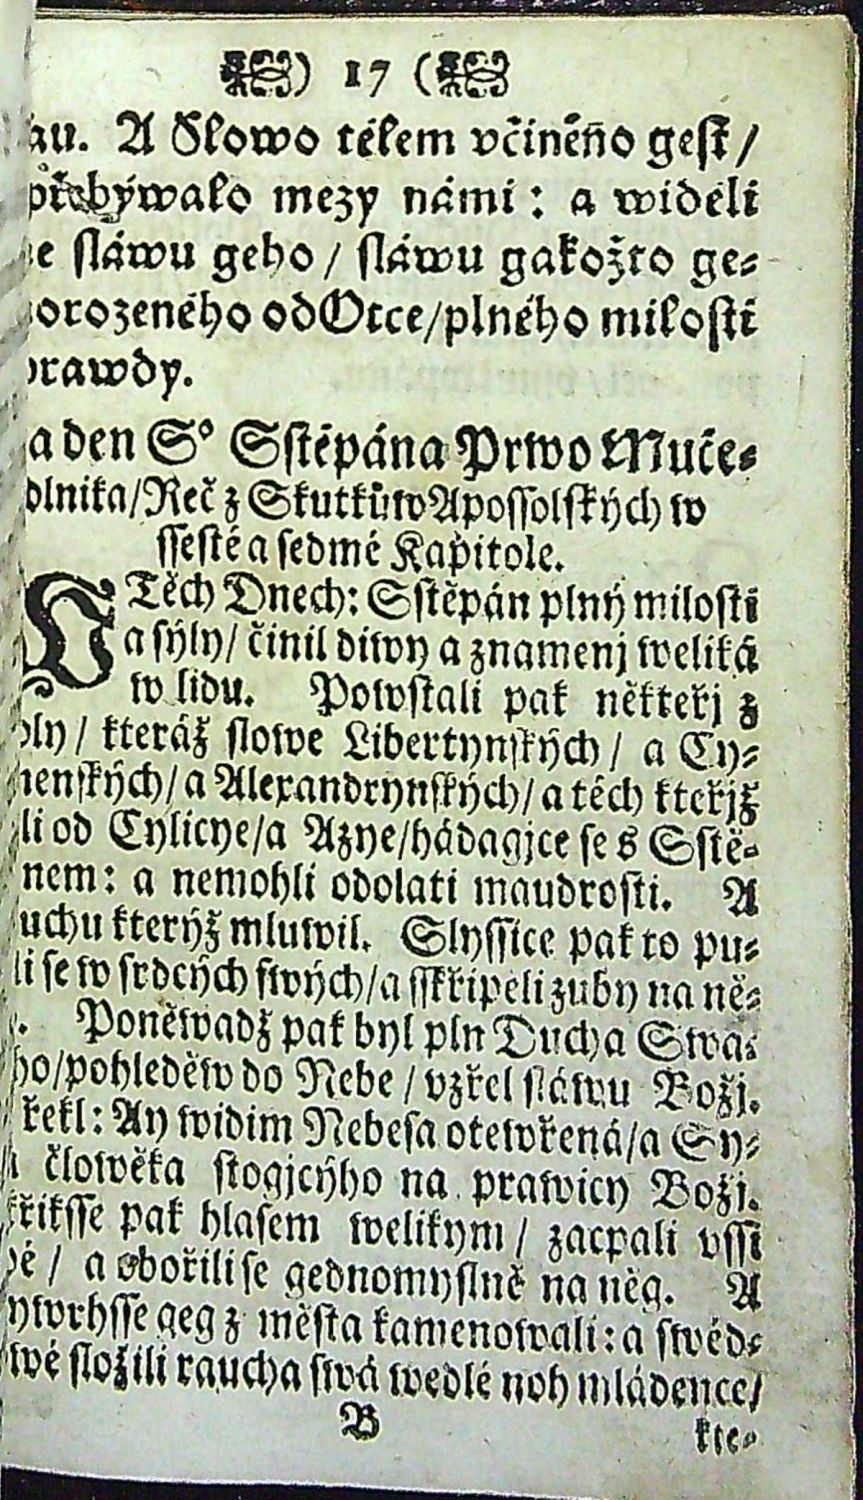 ) 17 (
au. A Slowo tělem včiněno gest /
přebýwalo mezy námi : a widěli
e sláwu geho / sláwu gakožto ge⸗
orozeného od Otce / plného milosti
rawdy.
a den S° Sstěpána Prwo Muče⸗
dlnika / Reč z Skutkůw Aposssolských w
ssesté a sedmé Kapitole.
Těch Dnech: Sstěpán plný milosti
a sýly / činil diwy a znamenj weliká
w lidu. Powstali pak někteřj z
oly / kteráž slowe Libertynských / a Cy⸗
nenských / a Alexandrynských / a těch kteřjž
li od Cylicye / a Azye / hádagjce se s Sstě⸗
nem: a nemohli odolati maudrosti. A
uchu kterýž mluwil. Slyssice pak to pu⸗
li se w srdcých swých / a sskřipěli zuby na ně⸗
. Poněwadž pak byl pln Ducha Swa⸗
ho / pohleděw do Nebe / vzřel sláwu Božj.
řekl: Ay widim Nebesa otewřená / a Sy⸗
člowěka stogjcýho na prawicy Božj.
řiksse pak hlasem welikym / zacpali vssi
é / a obořili se gednomyslně na něg. A
ywrhsse geg z města kamenowali: a swěd⸗
wé složili raucha swá wedlé noh mládence /
B
kte⸗